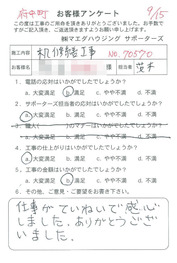 府中町 お客様アンケート 9/15
この度は工事のご用命を頂きありがとうございました。お手数で
すがご記入頂き、ご返送頂きますようお願い致します。
㈱マエダハウジング サポーターズ
工事内容 工事 NO.70570
お客様名 様 担当者 茨木
1. 電話の応対はいかがでしたでしょうか？
a. 大変満足 b. 満足 c. やや不満 d. 不満
2. サポーターズ担当者の応対はいかがでしたでしょうか？
a. 大変満足 b. 満足 c. やや不満 d. 不満
a. 大変満足 b. 満足 c. やや不満 d. 不満
4. 工事の仕上がりはいかがでしたでしょうか？
a. 大変満足 b. 満足 c. やや不満 d. 不満
5. 工事価格はいかがでしたでしょうか？
a. 大変満足 b. 満足 c. やや不満 d. 不満
6. その他、ご意見・ご要望をお書き下さい。
仕事がていねいで感心
しました。ありがとうござ
いました。